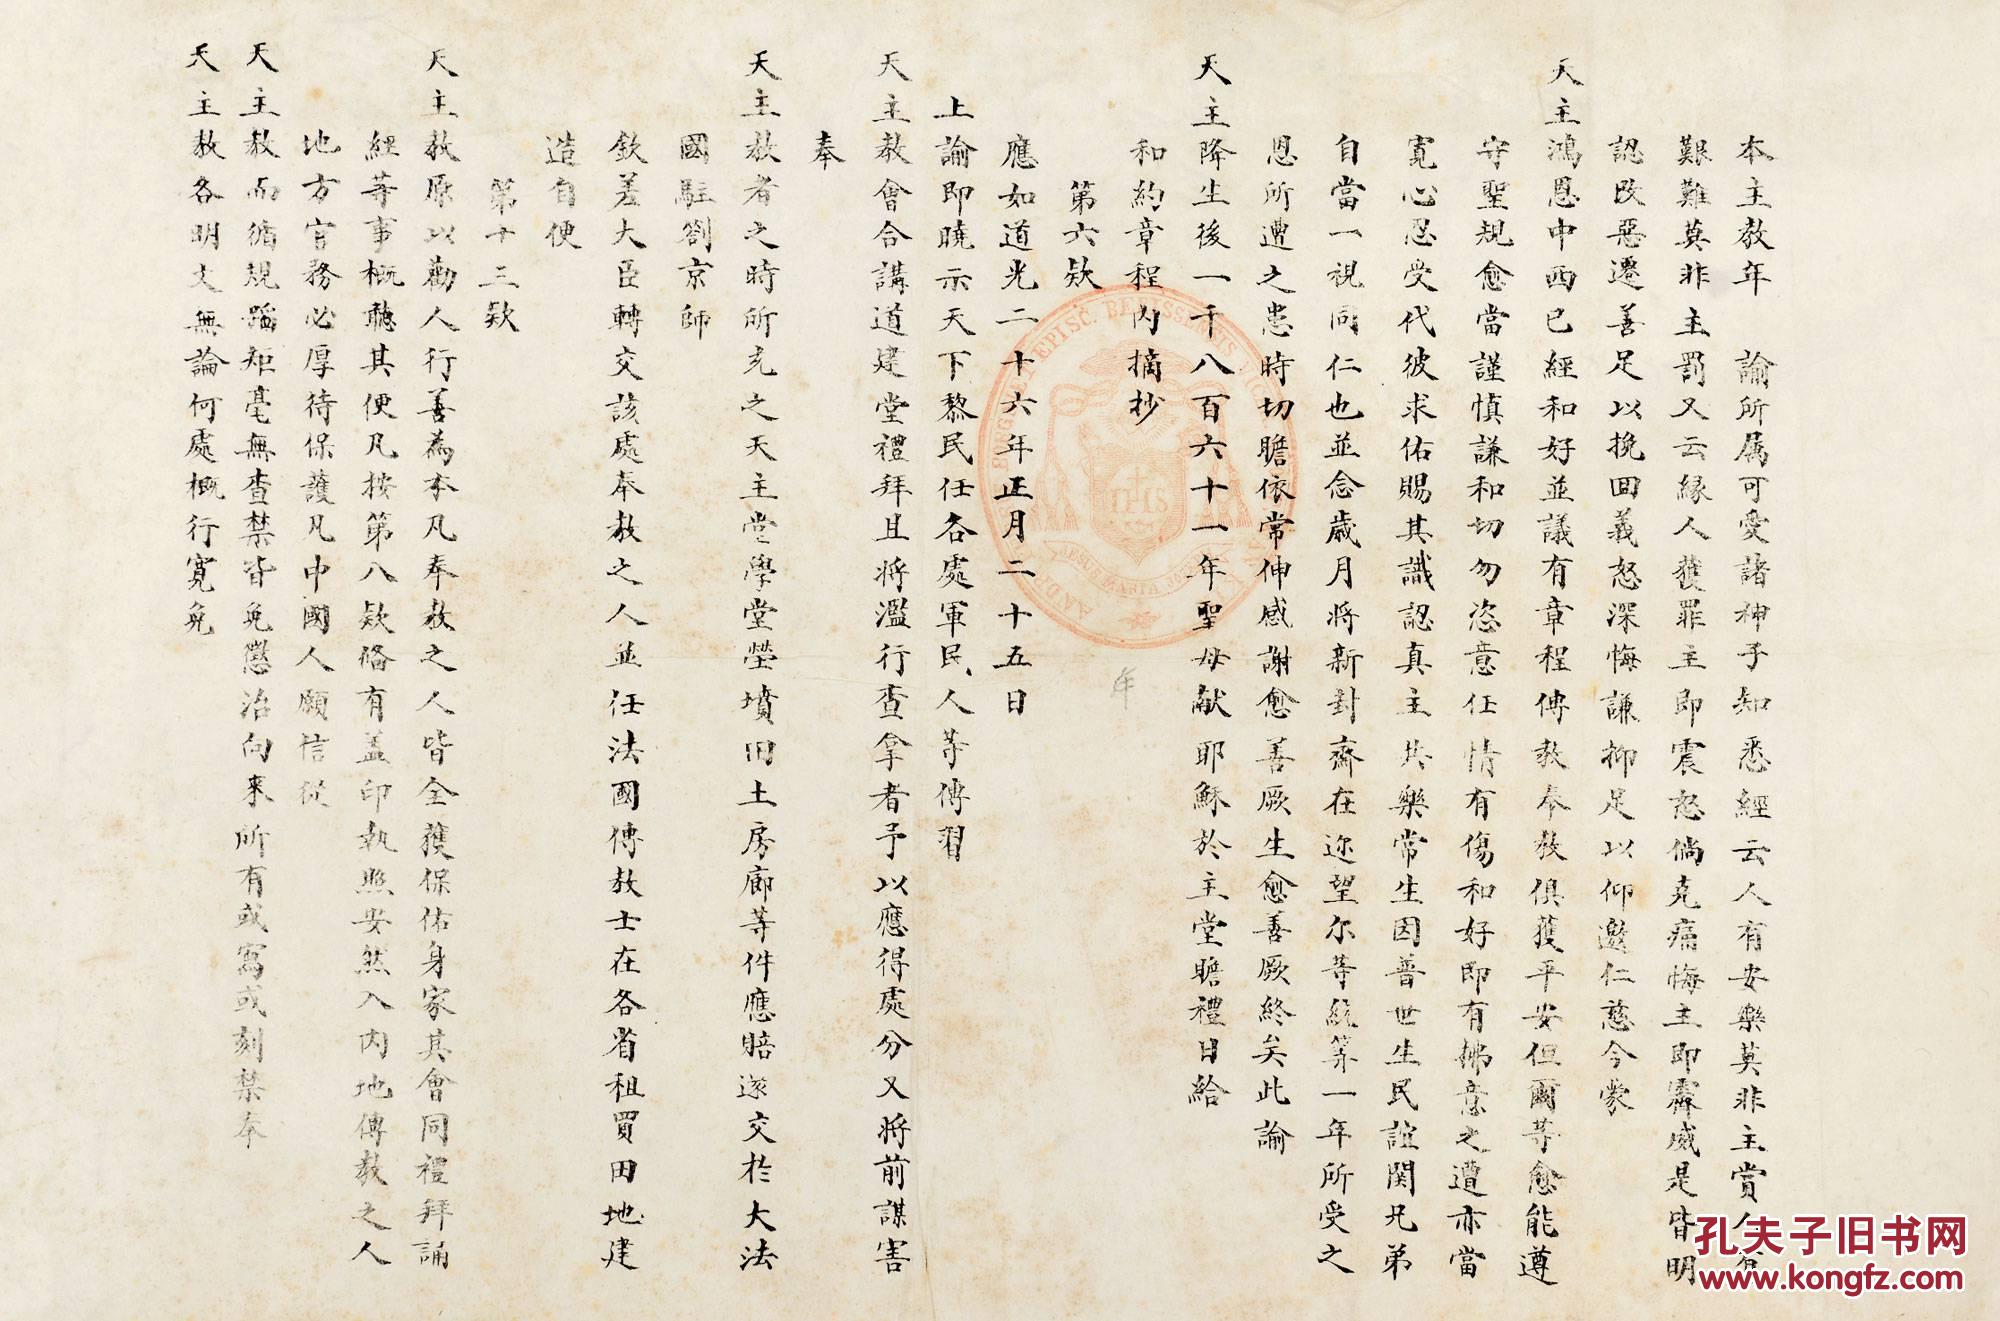 本主教年　諭所属可愛諸神子知悉經云人有安樂莫非主賞人有
艱難莫非主罰又云緣人獲罪主即震怒倘克痛悔主即霽威是皆明
認改惡遷善足以挽回義怒深悔謙抑足以仰邀仁慈今蒙
天主鴻恩中西已經和好並議有章程傳教奉教俱獲平安但爾等愈能遵
守聖規愈當謹慎謙和切勿恣意任情有傷和好即有拂意之遭亦當
寬心忍受代彼求佑賜其識認真主共樂常生因普世生民誼関兄弟
自當一視同仁也並念歲月將新封齋在迩望尔等統算一年所受之
恩所遭之患時切瞻依常伸感謝愈善厥生愈善厥終矣此諭
天主降生後一千八百六十一年聖母献耶穌於主堂瞻禮日給
和約章程內摘抄
年
第六欵
應如道光二十六年正月二十五日
上諭即曉示天下黎民任各處軍民人等傳習
天主教會合講道建堂禮拜且將濫行查拿者予以應得處分又將前謀害
奉
天主教者之時所充之天主堂學堂塋墳田土房廊等件應賠還交於大法
國駐劄京師
欽差大臣轉交該處奉教之人並任法國傳教士在各省租買田地建
造自便
第十三欵
天主教原以勸人行善為本凡奉教之人皆全獲保佑身家其會同禮拜誦
經等事概聽其便凡按第八欵備有盖印執照安然入內地傳教之人
地方官務必厚待保護凡中國人願信從
天主教而循規蹈矩毫無查禁皆免懲治向來所有或寫或刻禁奉
天主教各明文無論何處概行寬免
EPISC.
IHS
JESUS MARIA
孔夫子旧书网
www.kongfz.com